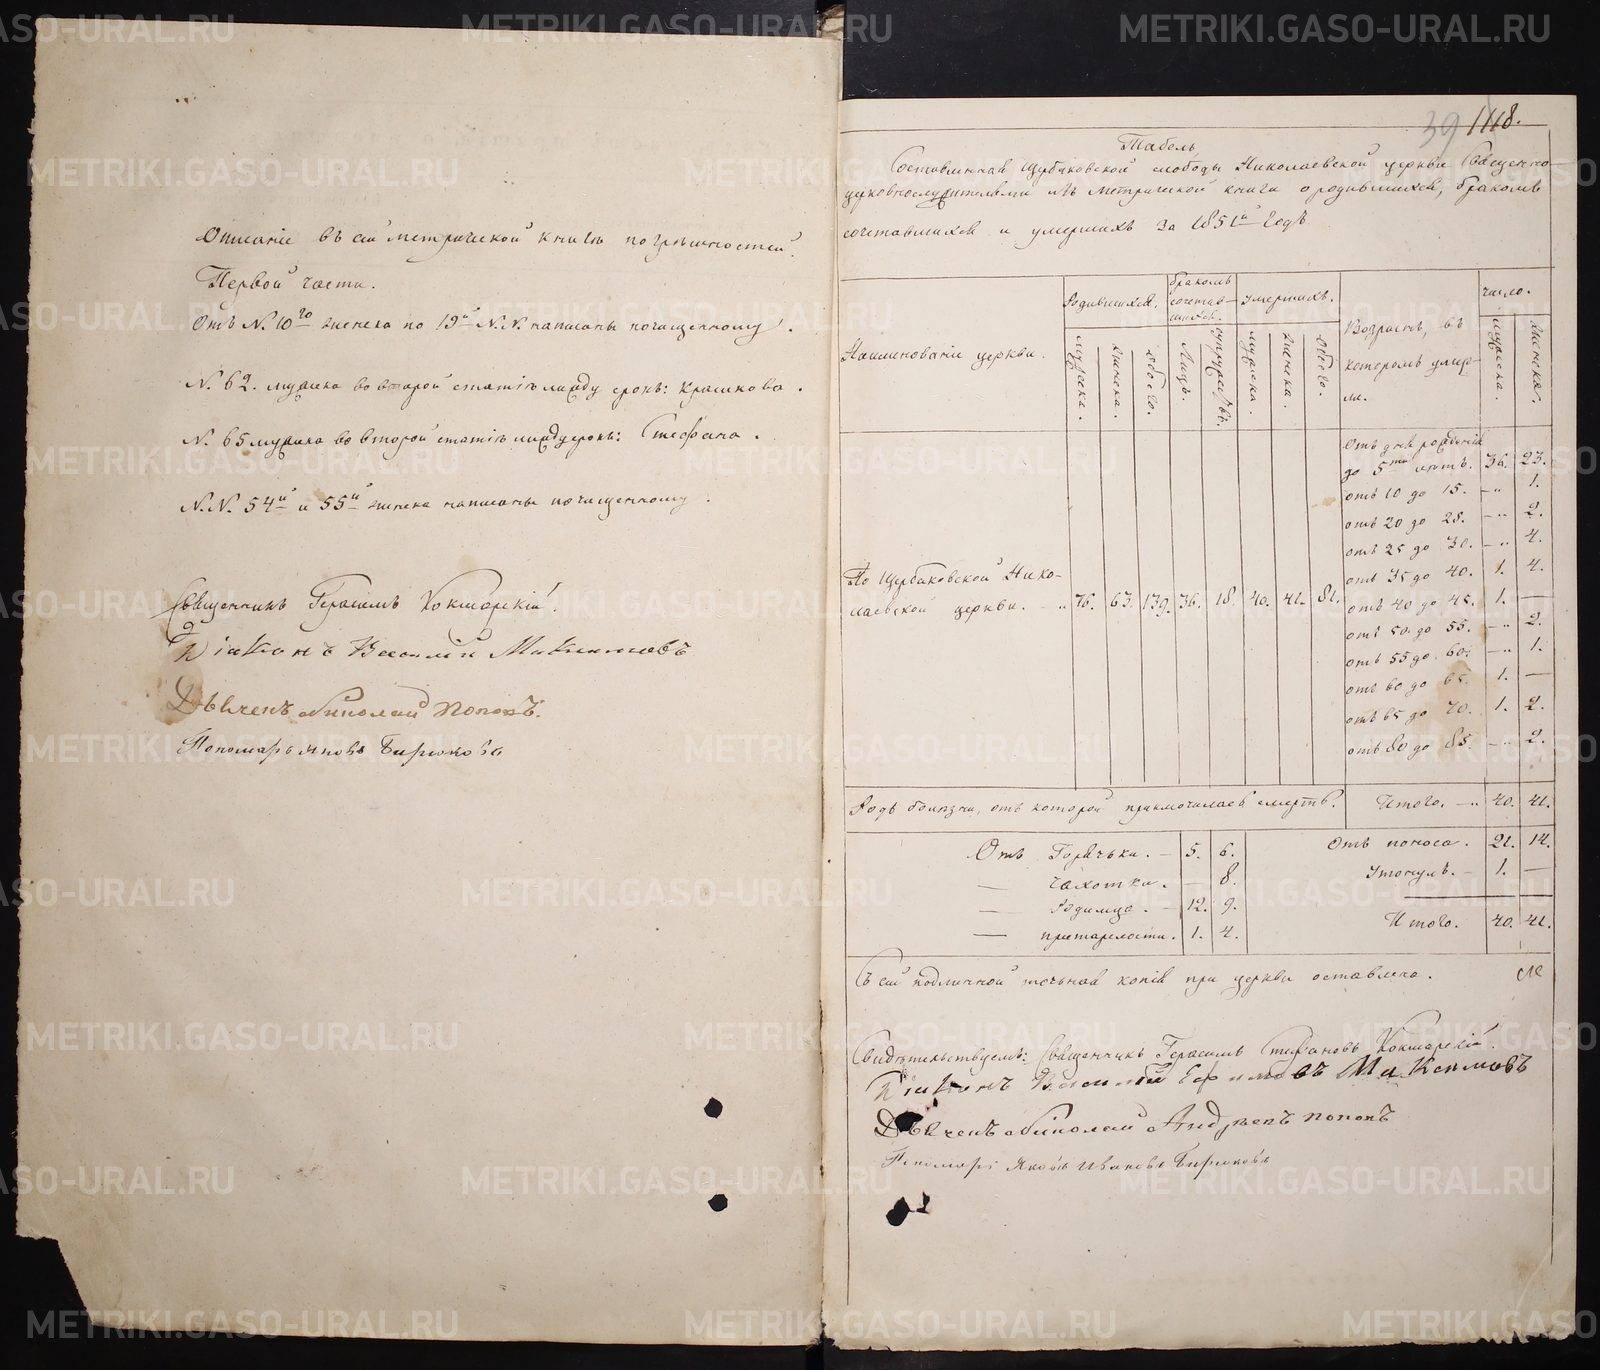 Описаніе въ сей метрической книгѣ погрѣшностей.
Первой части.
Отъ N. 10го женска по 19й N.N. написаны почищенному.
N. 62. мужска во второй статьѣ между строкъ: Крашикова.
N. 65 мужска во второй статьѣ между строкъ: Стефана.
N.N. 54й и 55й женска написаны почищенному.
Священникъ Герасимъ Кокшарскій.
Діаконъ Василій Максимовъ
Дьячекъ Николай Поповъ.
Пономарь Яковъ Бирюковъ
39 1118.
Табель
Составленная Щербаковской слободы Николаевской церкви Священно-
церковнослужителями изъ метрической книги о родившихся, бракомъ
сочетавшихся и умершихъ за 1851й годъ
Наименованіе церкви.
Родившихся.
мужска.
женска.
обоего.
бракомъ
сочетав-
шихся.
Лицъ.
супружествъ.
умершихъ.
мужска.
женска.
обоего.
Возрастъ, въ
которомъ умер-
ли.
число.
мужска.
женска.
По Щербаковской Нико-
лаевской церкви. 76. 63. 139. 36. 18. 40. 41. 81.
отъ дня рожденія
до 5ти лѣтъ. 36. 23.
отъ 10 до 15. — 1.
отъ 20 до 25. — 2.
отъ 25 до 30. — 4.
отъ 35 до 40. 1. 4.
отъ 40 до 45. 1. —
отъ 50 до 55. — 2.
отъ 55 до 60. — 1.
отъ 60 до 65. 1. —
отъ 65 до 70. 1. 2.
отъ 80 до 85. — 2.
Родъ болѣзни, отъ которой приключилась смерть. Итого. — 40. 41.
Отъ Горячьки. — 5. 6. Отъ поноса. 21. 14.
— чахотки. — 8. Утонулъ. — 1. —
— Родимца. — 12. 9.
— престарелости. 1. 4. Итого. 40. 41.
Съ сей подлинной точьная копія при церкви оставлена.
Свидѣтельствуемъ: Священникъ Герасимъ Стефановъ Кокшарскій.
Діаконъ Василій Ефимовъ Максимовъ
Дьячекъ Николай Андреевъ Поповъ
Пономарь Яковъ Ивановъ Бирюковъ
METRIKI.GASO-URAL.RU